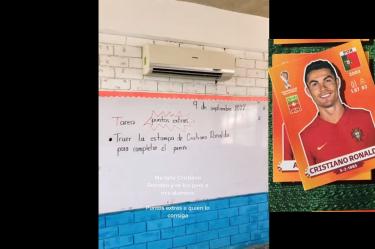 9 de septiembre 2022
Tarea puntos extras
• Traer la estampa de Cristiano Ronaldo
para completar el panini
Me falta Cristiano
Ronaldo y se los a
mis alumnos
Puntos extras a quien lo
consiga
CRISTIANO RONALD